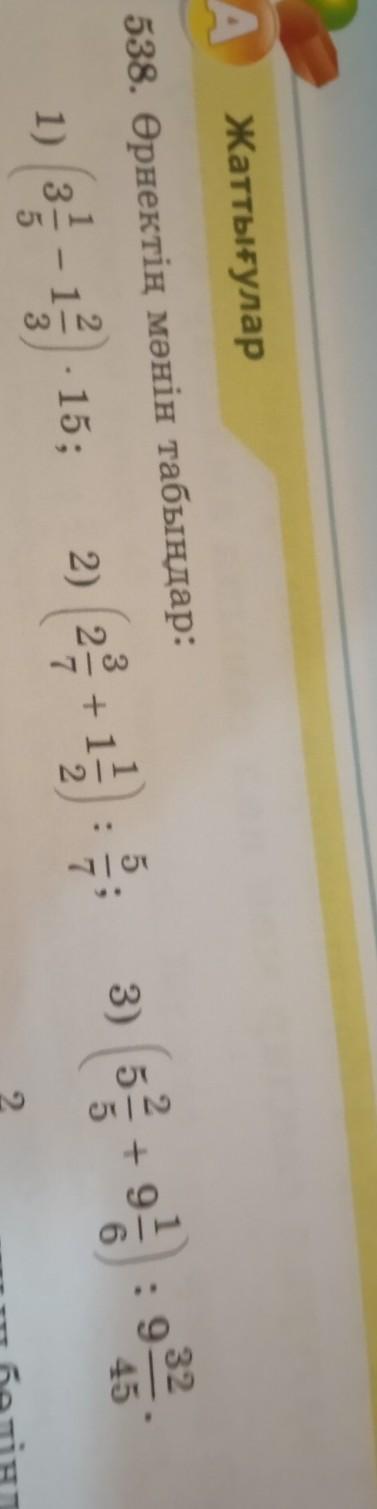 А
Жаттығулар
538. Өрнектің мәнін табыңдар:
1) (3 1/5 − 1 2/3) · 15; 2) (2 3/7 + 1 1/2) : 5/7; 3) (5 2/5 + 9 1/6) : 9 32/45.
2